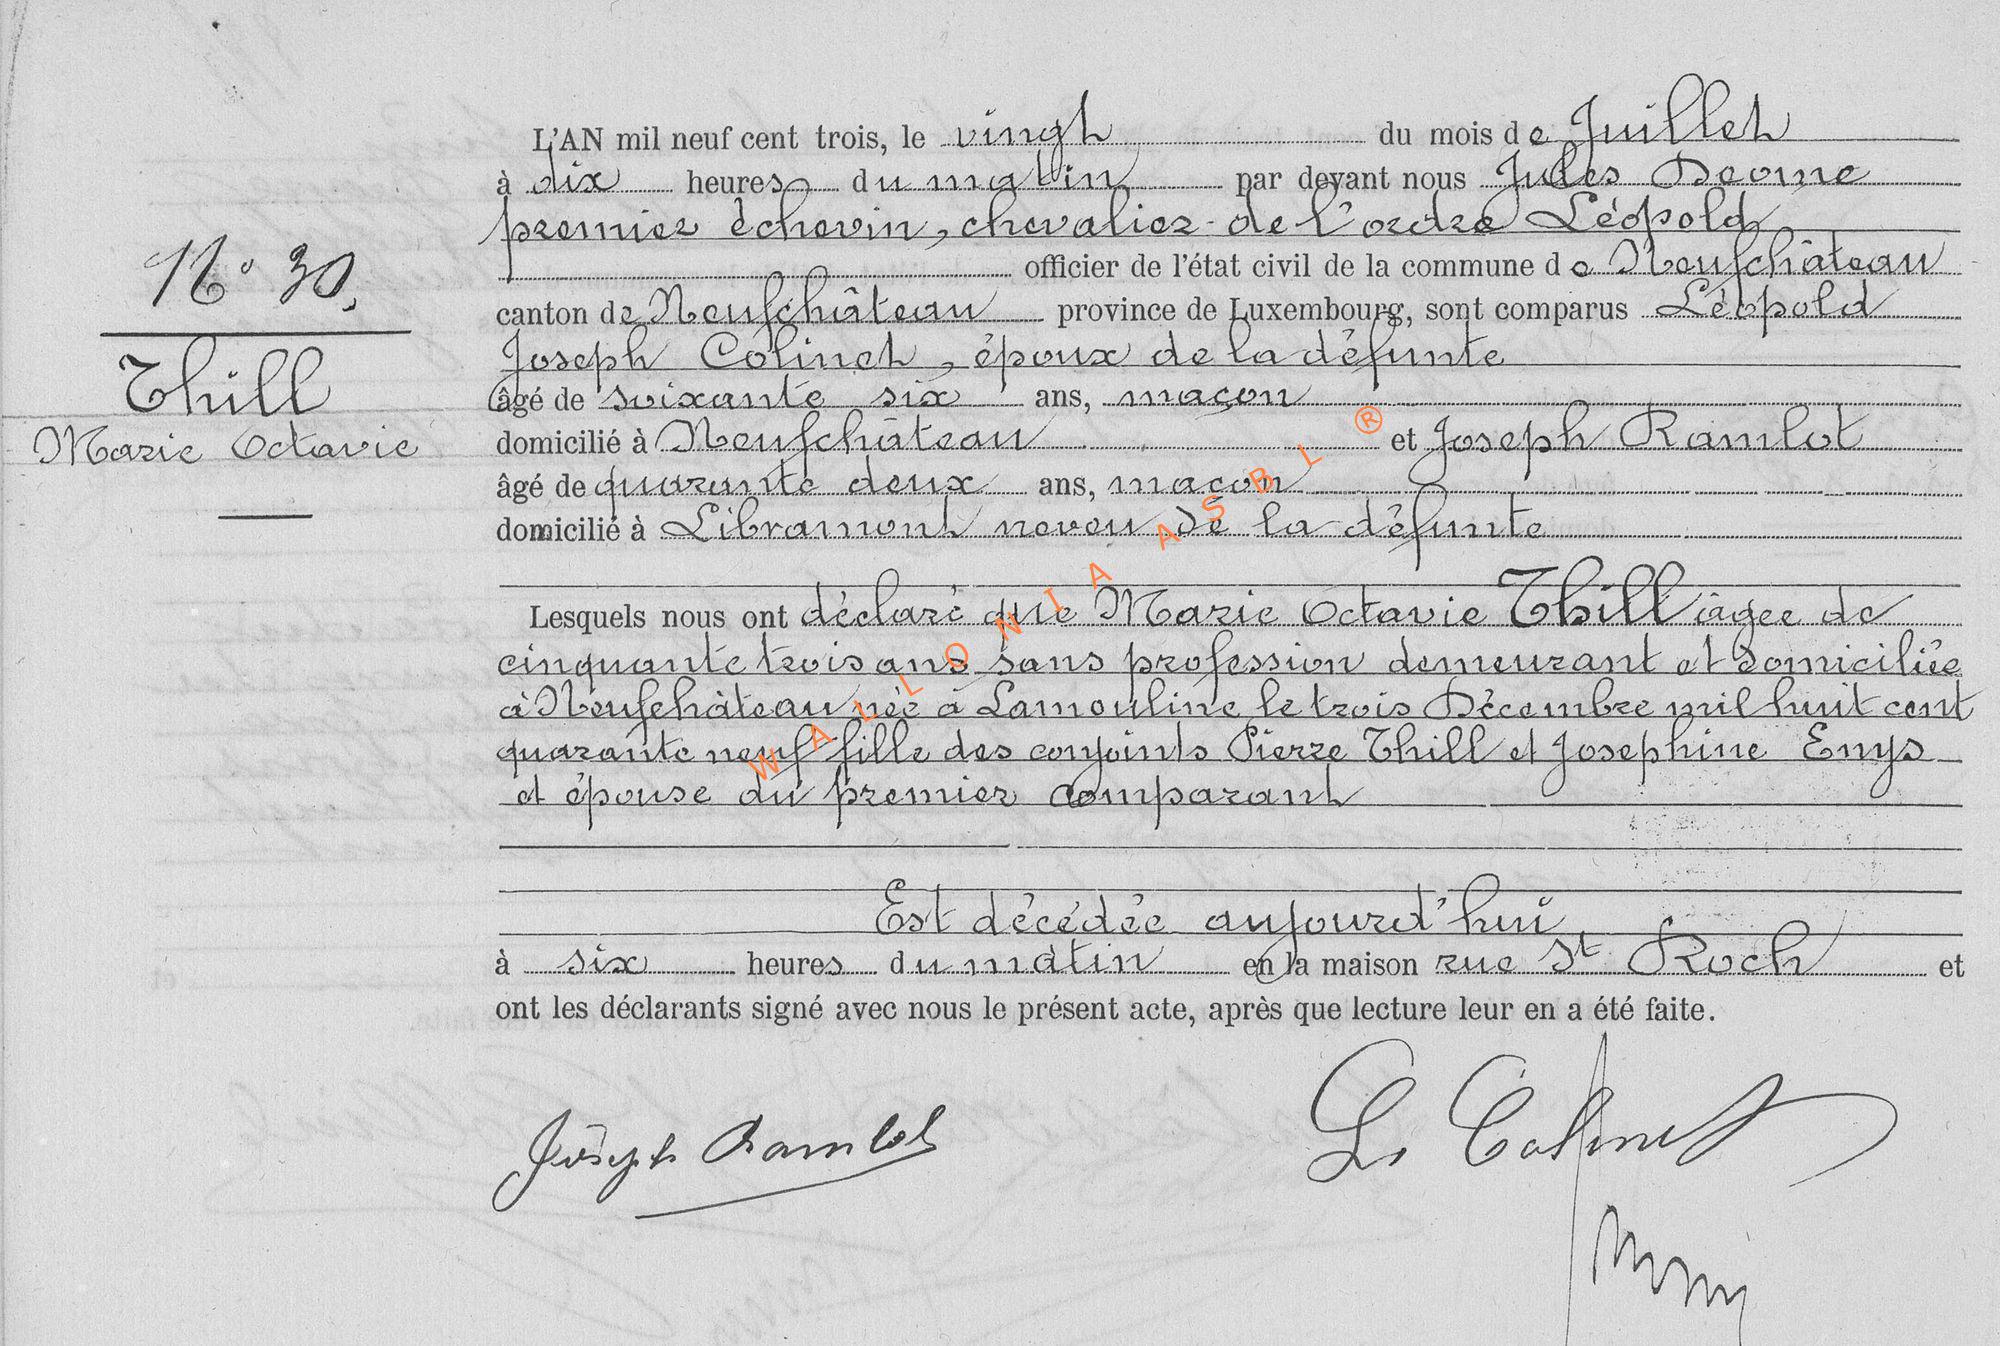 L'AN mil neuf cent trois, le vingt du mois de Juillet
à dix heures du matin par devant nous Jules Deome
premier échevin, chevalier de l'ordre Léopold
officier de l'état civil de la commune de Neufchâteau
canton de Neufchâteau province de Luxembourg, sont comparus Léopold
Joseph Colinet, époux de la défunte
âgé de soixante six ans, maçon
domicilié à Neufchâteau et Joseph Ramlot
âgé de quarante deux ans, maçon
domicilié à Libramont neveu de la défunte
Lesquels nous ont déclaré que Marie Octavie Thill âgée de
cinquante trois ans sans profession demeurant et domiciliée
à Neufchâteau née à Lamouline le trois Décembre mil huit cent
quarante neuf fille des conjoints Pierre Thill et Josephine Enys
et épouse du premier comparant
Est décédée aujourd'hui
à six heures du matin en la maison rue St Roch et
ont les déclarants signé avec nous le présent acte, après que lecture leur en a été faite.
N° 30.
Thill
Marie Octavie
Joseph Ramlot
L. Colinet
WALLONIA ASBL ®